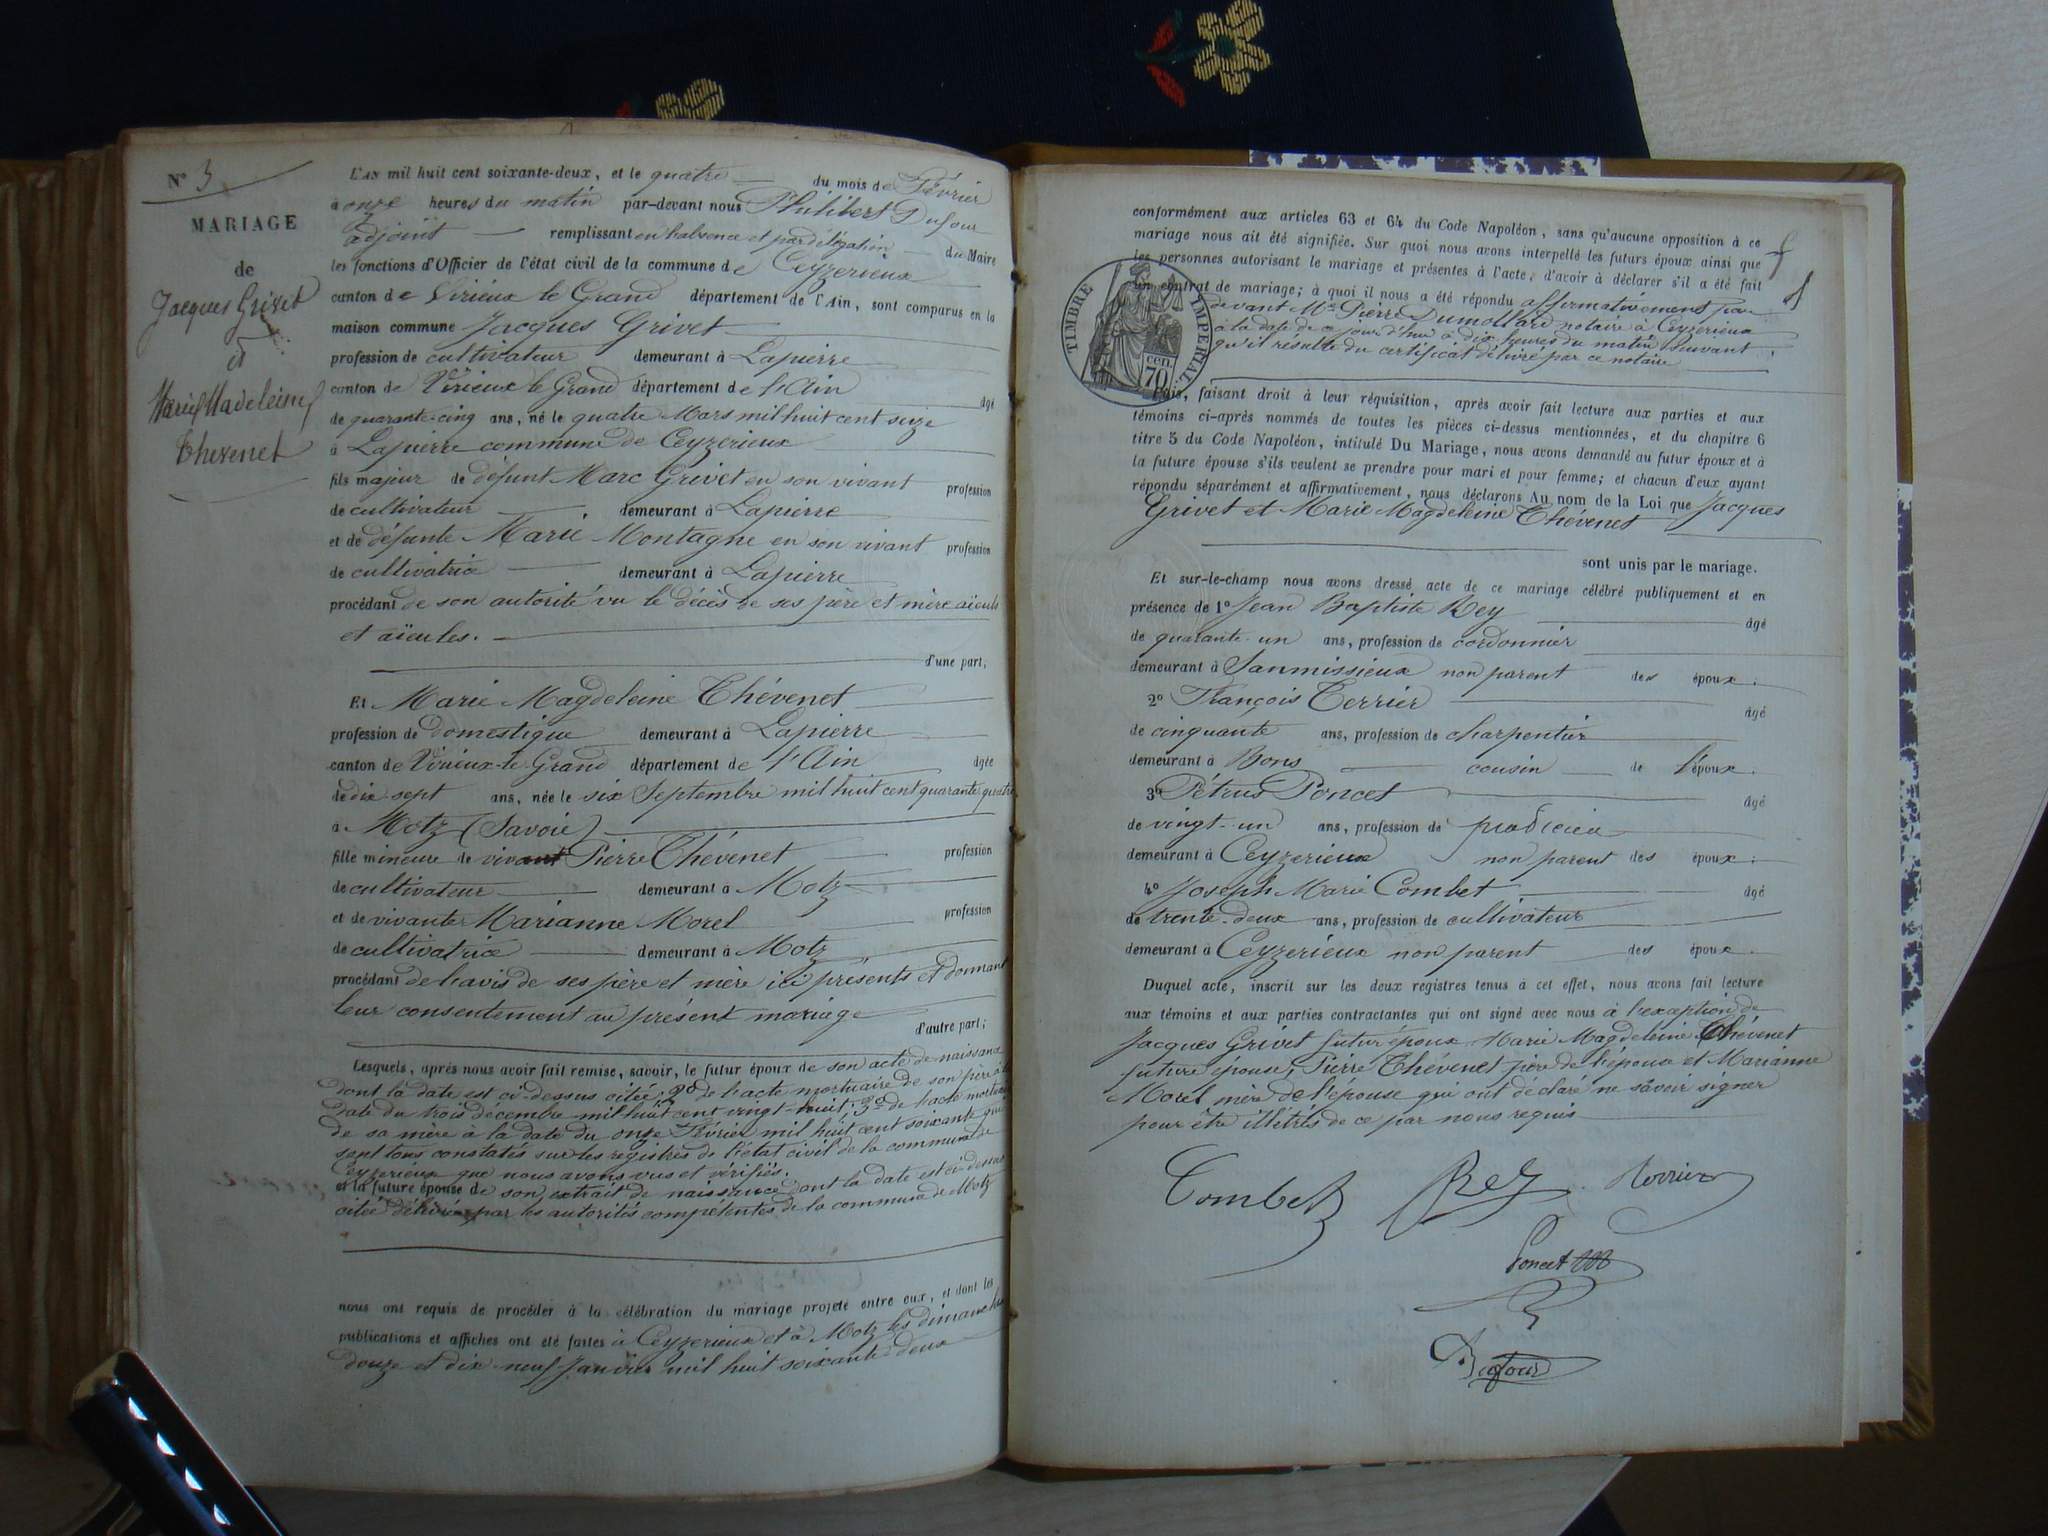 N° 3
MARIAGE
de
Jacques Grivet
et
Marie Madeleine
Thevenet
L'AN mil huit cent soixante-deux, et le quatre du mois de Février
à onze heures du matin par-devant nous Philibert Dufour
adjoint remplissant en l'absence et par délégation du Maire
les fonctions d'Officier de l'état civil de la commune de Ceyzerieux
canton de Virieux le Grand département de l'Ain, sont comparus en la
maison commune Jacques Grivet
profession de cultivateur demeurant à Lapierre
canton de Virieux le Grand département de l'Ain âgé
de quarante-cinq ans, né le quatre Mars mil huit cent seize
à Lapierre commune de Ceyzerieux
fils majeur de défunt Marc Grivet en son vivant profession
de cultivateur demeurant à Lapierre
et de défunte Marie Montagne en son vivant profession
de cultivatrice demeurant à Lapierre
procédant de son autorité vu le décès de ses père et mère aïeuls
et aïeules.
d'une part,
Et Marie Magdeleine Thévenet
profession de domestique demeurant à Lapierre
canton de Virieux-le-Grand département de l'Ain âgée
de dix-sept ans, née le six Septembre mil huit cent quarante quatre
à Motz (Savoie)
fille mineure de vivant Pierre Thévenet profession
de cultivateur demeurant à Motz
et de vivante Marianne Morel profession
de cultivatrice demeurant à Motz
procédant de l'avis de ses père et mère ici présents et donnant
leur consentement au présent mariage
d'autre part;
Lesquels, après nous avoir fait remise, savoir, le futur époux de son acte de naissance
dont la date est ci-dessus citée; 2° de l'acte mortuaire de son père à la
date du trois décembre mil huit cent vingt-huit; 3° de l'acte mortuaire
de sa mère à la date du onze Février mil huit cent soixante qui
sont tous constatés sur les registres de l'état civil de la commune de
Ceyzerieux que nous avons vus et vérifiés.
et la future épouse de son extrait de naissance dont la date est ci-dessus
citée délivré par les autorités compétentes de la commune de Motz
nous ont requis de procéder à la célébration du mariage projeté entre eux, et dont les
publications et affiches ont été faites à Ceyzerieux et à Motz les dimanches
douze et dix-neuf Janvier mil huit soixante deux
conformément aux articles 63 et 64 du Code Napoléon, sans qu'aucune opposition à ce
mariage nous ait été signifiée. Sur quoi nous avons interpellé les futurs époux ainsi que
les personnes autorisant le mariage et présentes à l'acte, d'avoir à déclarer s'il a été fait
un contrat de mariage; à quoi il nous a été répondu affirmativement par
devant Me Pierre Dumollard notaire à Ceyzerieux
à la date de ce jour d'hui à dix heures du matin suivant
qu'il résulte du certificat délivré par ce notaire
TIMBRE IMPERIAL
70 cen.
Puis, faisant droit à leur réquisition, après avoir fait lecture aux parties et aux
témoins ci-après nommés de toutes les pièces ci-dessus mentionnées, et du chapitre 6
titre 5 du Code Napoléon, intitulé Du Mariage, nous avons demandé au futur époux et à
la future épouse s'ils veulent se prendre pour mari et pour femme; et chacun d'eux ayant
répondu séparément et affirmativement, nous déclarons Au nom de la Loi que Jacques
Grivet et Marie Magdeleine Thévenet
sont unis par le mariage.
Et sur-le-champ nous avons dressé acte de ce mariage célébré publiquement et en
présence de 1° Jean Baptiste Rey âgé
de quarante-un ans, profession de cordonnier
demeurant à Sanmissieux non parent des époux.
2° François Terrier âgé
de cinquante ans, profession de charpentier
demeurant à Bons cousin de l'époux.
3° Pétrus Poncet âgé
de vingt-un ans, profession de praticien
demeurant à Ceyzerieux non parent des époux.
4° Joseph Marie Combet âgé
de trente-deux ans, profession de cultivateur
demeurant à Ceyzerieux non parent des époux.
Duquel acte, inscrit sur les deux registres tenus à cet effet, nous avons fait lecture
aux témoins et aux parties contractantes qui ont signé avec nous à l'exception de
Jacques Grivet futur époux Marie Magdeleine Thévenet
future épouse, Pierre Thévenet père de l'épouse et Marianne
Morel mère de l'épouse qui ont déclaré ne savoir signer
pour être illétrés de ce par nous requis
Combet Rey Terrier
Poncet
Dufour